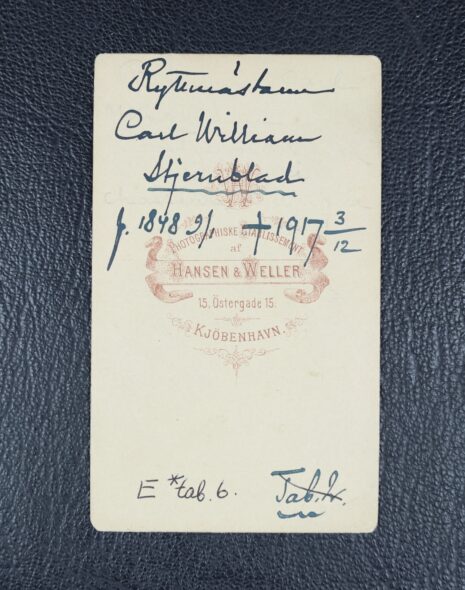 Ryttmästaren
Carl William
Stjernblad
f. 1848 9/1 † 1917 3/12
HW
PHOTOGRAPHISKE ETABLISSEMENT
af
HANSEN & WELLER
15, Östergade 15.
KJÖBENHAVN.
E * tab. 6.
Tab.